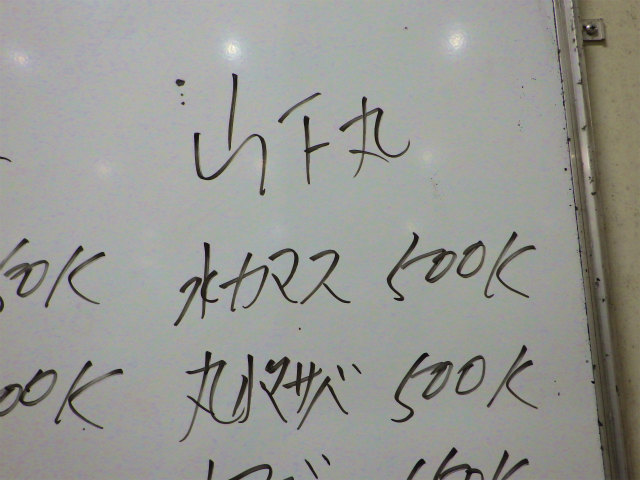 山下丸
50K 水カマス 500K
00K 丸小マサバ 500K